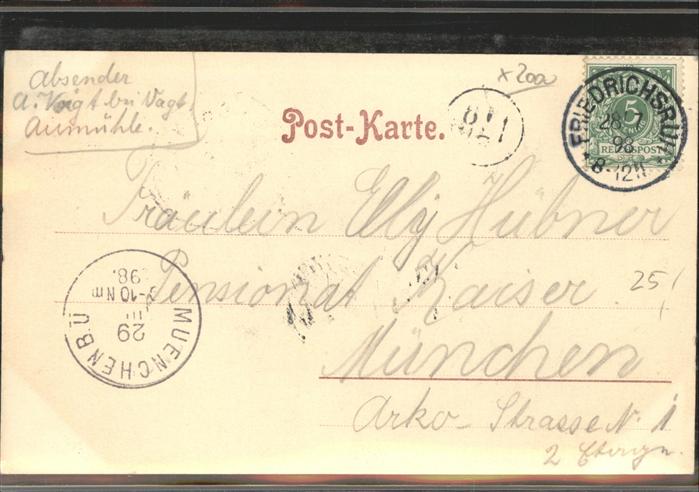 Absender
A. Voigt bei Vagt
Aumühle.
x 200
Post-Karte.
FRIEDRICHSRUH
28 7
98
8-12N.
5
REICHSPOST
Fräulein Elly Hübner
Pensionat Kaiser.
25
München
Arko-Strasse N. 1
2
MUENCHEN B.Ü
29
-10 Nm
98.